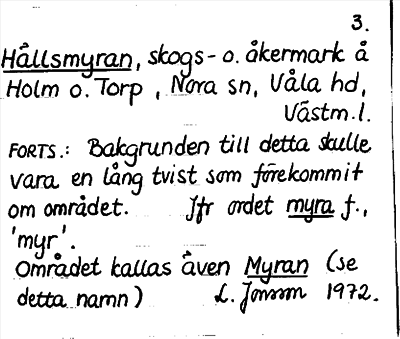 3.
Hållsmyran, skogs- o. åkermark å
Holm o. Torp, Nora sn, Våla hd,
Västm.l.
FORTS.: Bakgrunden till detta skulle
vara en lång tvist som förekommit
om området. Jfr ordet myra f.,
'myr'.
Området kallas även Myran (se
detta namn) L. Jonsson 1972.